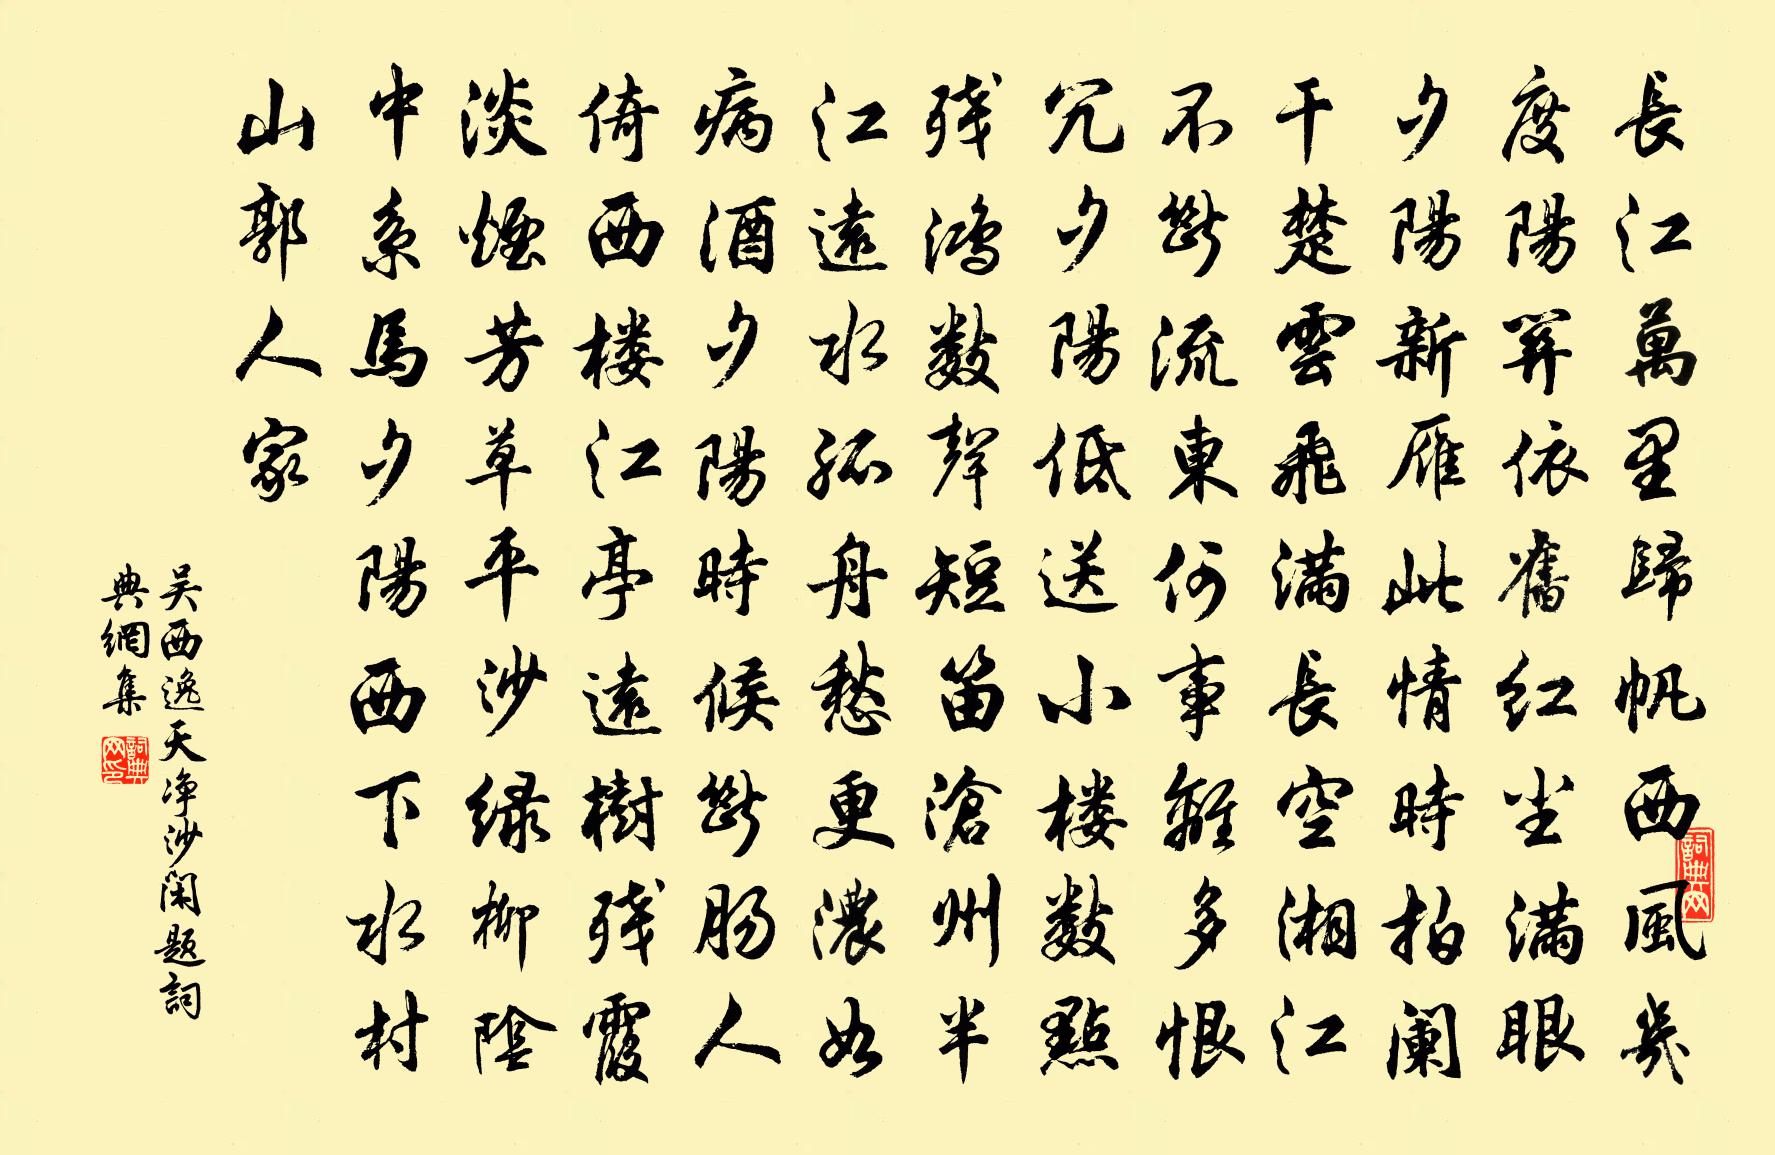 長江萬里歸帆西風幾
度陽關依舊红尘滿眼
夕陽新雁此情時拍阑
干楚雲飛滿長空湘江
不斷流東何事離多恨
冗夕陽低送小楼數點
残鴻數聲短笛滄州半
江遠水孤舟愁更濃如
病酒夕陽時候斷肠人
倚西楼江亭遠樹残霞
淡煙芳草平沙绿柳陰
中系馬夕陽西下水村
山郭人家
吴西逸天净沙闲题詞
典網集
詞典网
詞典网印